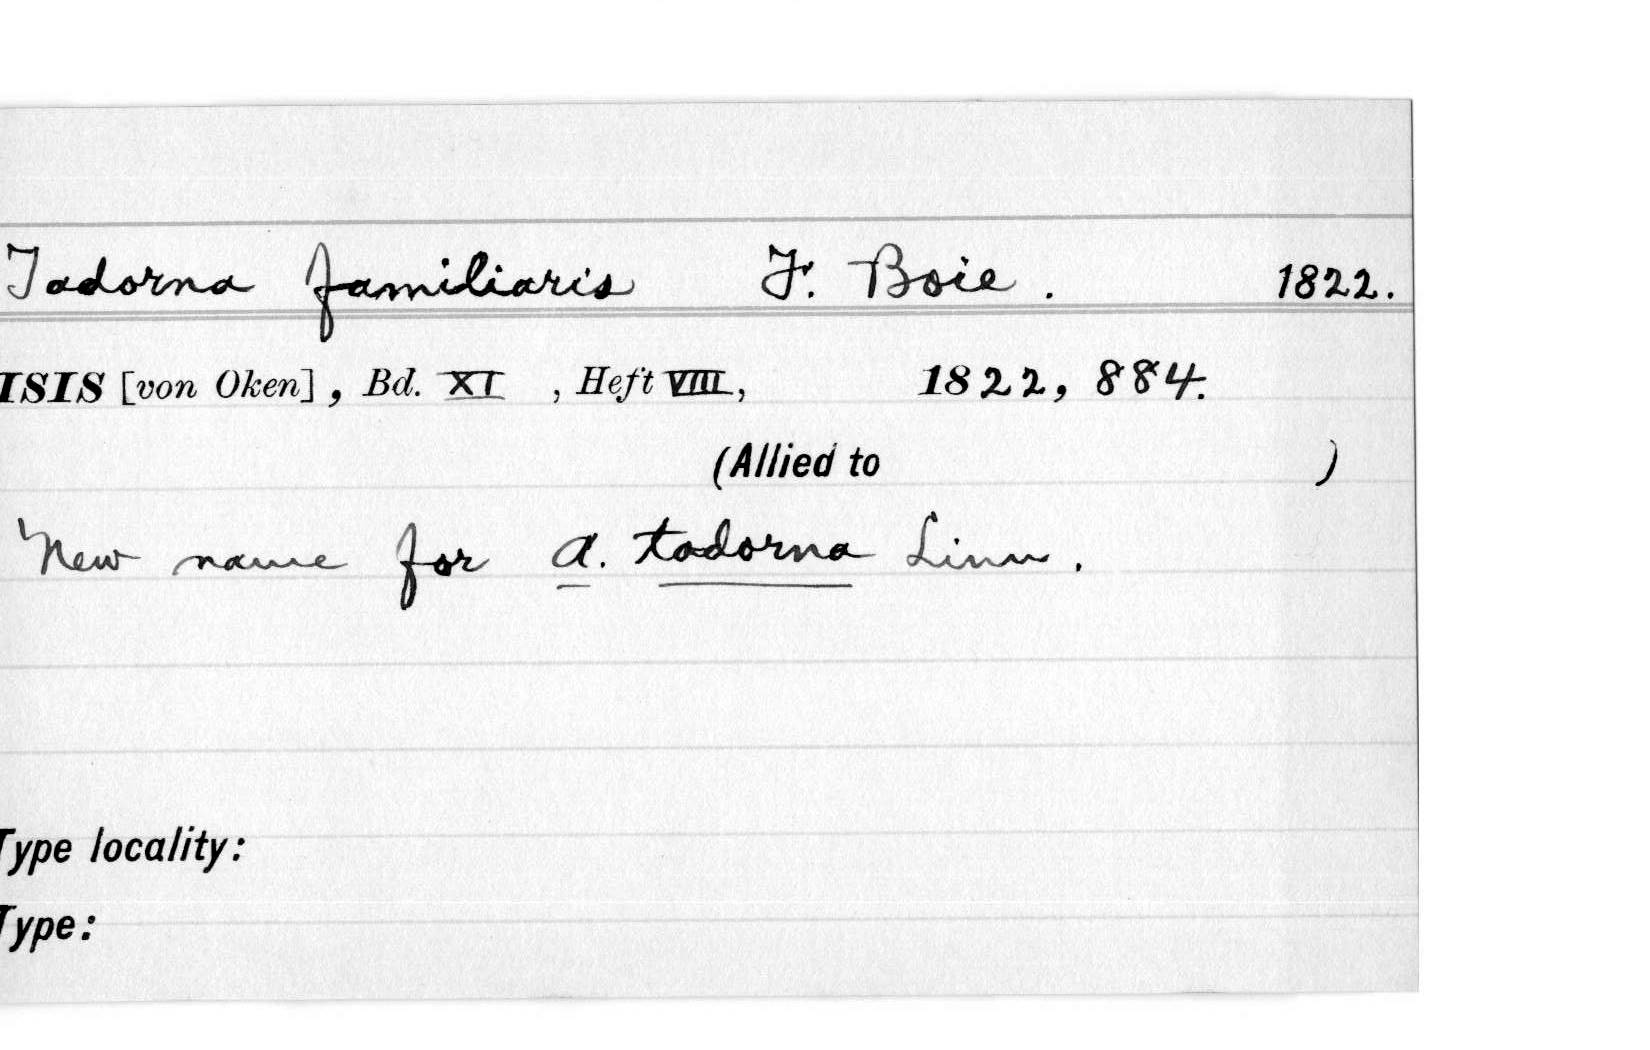 Tadorna familiaris F. Boie. 1822.
ISIS [von Oken], Bd. XI, Heft VIII, 1822, 884.
(Allied to )
New name for A. tadorna Linn.
Type locality:
Type: